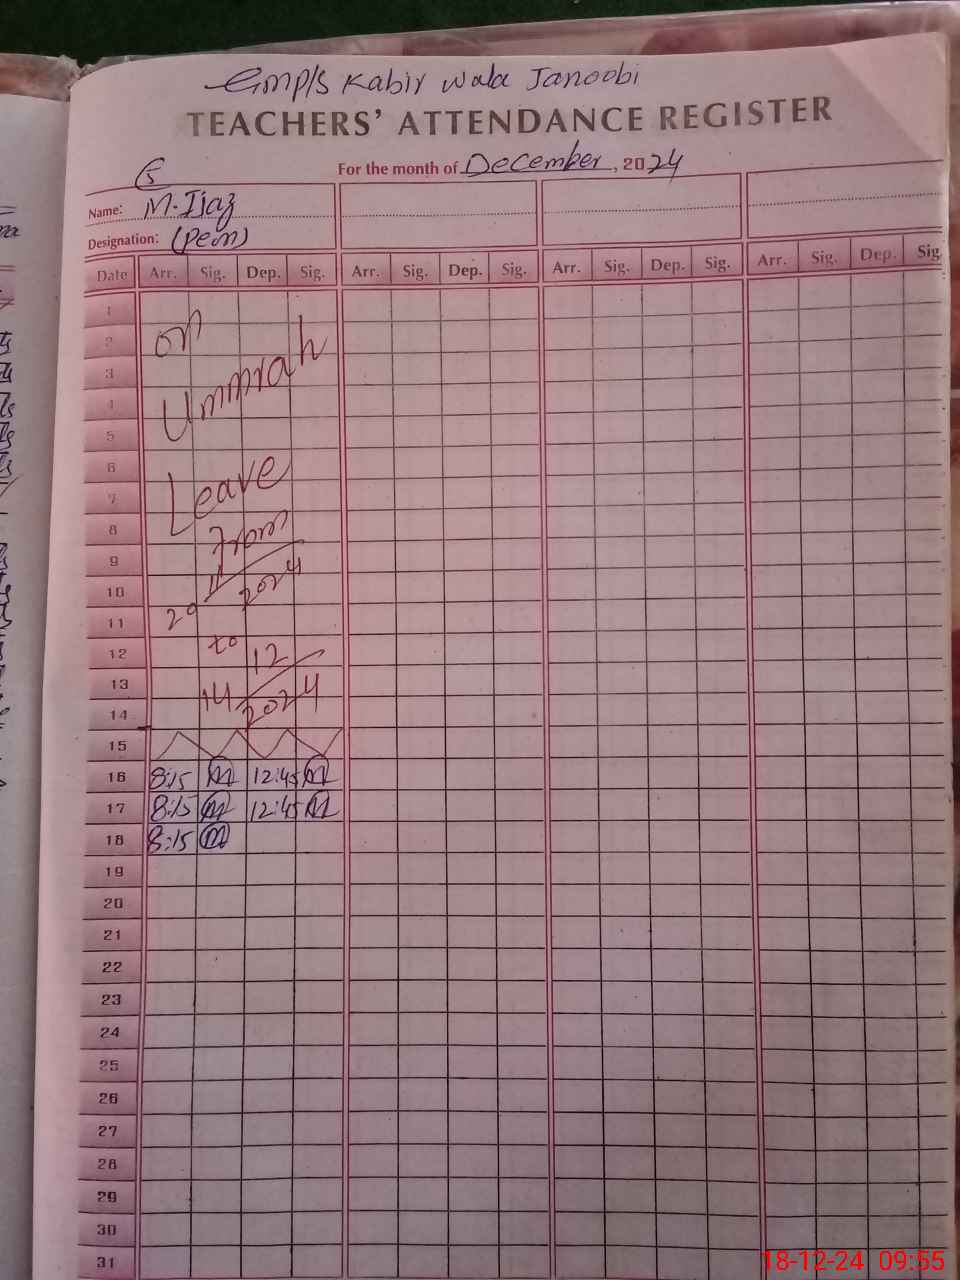 GMP/S Kabir Wala Janoobi
TEACHERS' ATTENDANCE REGISTER
For the month of December, 2024
5
Name: M. Ijaz
Designation: (Peon)
Date Arr. Sig. Dep. Sig. Arr. Sig. Dep. Sig. Arr. Sig. Dep. Sig. Arr. Sig. Dep. Sig
1
2 on
3 Ummrah
4
5
6
7 Leave
8 From
9
10 11
11 29 2024
12 to 12
13
14 14 2024
15
16 8:15 M 12:45 M
17 8:15 M 12:45 M
18 8:15 M
19
20
21
22
23
24
25
26
27
28
29
30
31
18-12-24 09:55